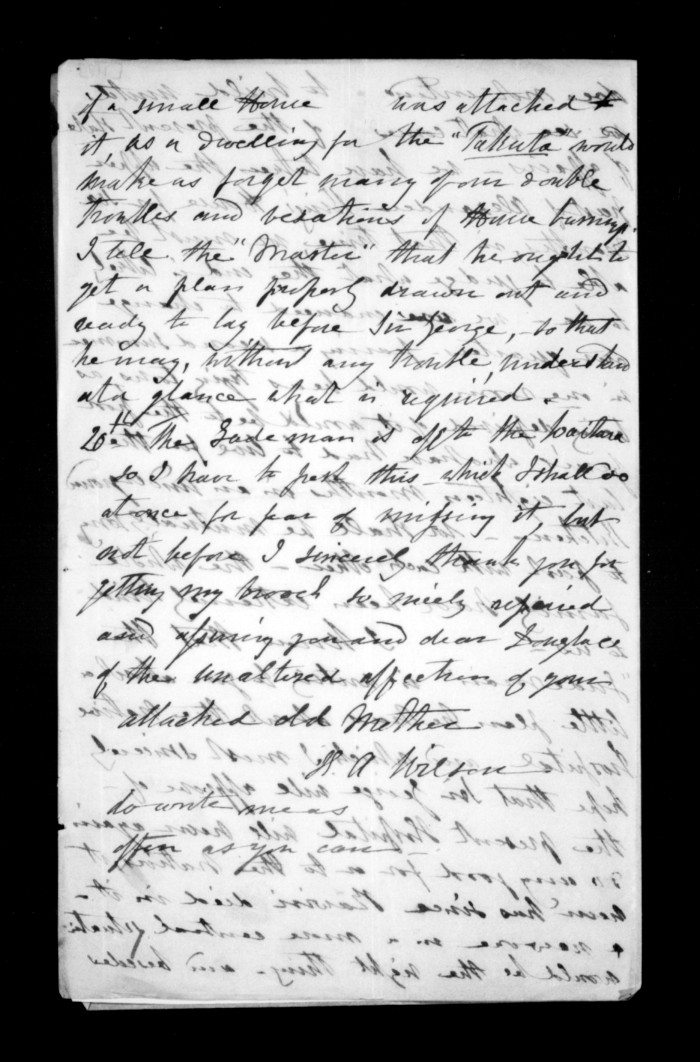 if a small House was attached to
it as a dwelling for the "Takuta" would
make us forget many of our double
troubles and vexations of House burning.
I tell the "Master" that he ought to
get a plan properly drawn out and
ready to lay before Sir George, so that
he may, without any trouble, understand
at a glance what is required.
20th The Gudeman is off to the
so I have to post this - which I shall do
at once for fear of missing it, but
not before I sincerely thank you for
getting my brooch so nicely repaired
and assuring you and dear Douglas
of the unaltered affection of your
attached old Mother
A Wilson
do write me as
often as you can